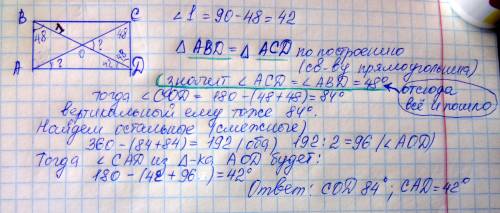 B
C
1
48
48
?
O
?
?
42
48
A
D
∠1 = 90-48 = 42
△ABD = △ACD по построению
(св-ву прямоугольника)
(значит ∠ACD = ∠ABD = 48°
отсюда
всё и пошло
тогда ∠COD = 180-(48+48) = 84°
вертикальный ему тоже 84°.
Найдем остальные (смежные)
360-(84+84) = 192 (оба) 192:2 = 96 (∠AOD)
Тогда ∠CAD из △-ка AOD будет:
180-(42+96) = 42°
Ответ: COD 84°; CAD = 42°